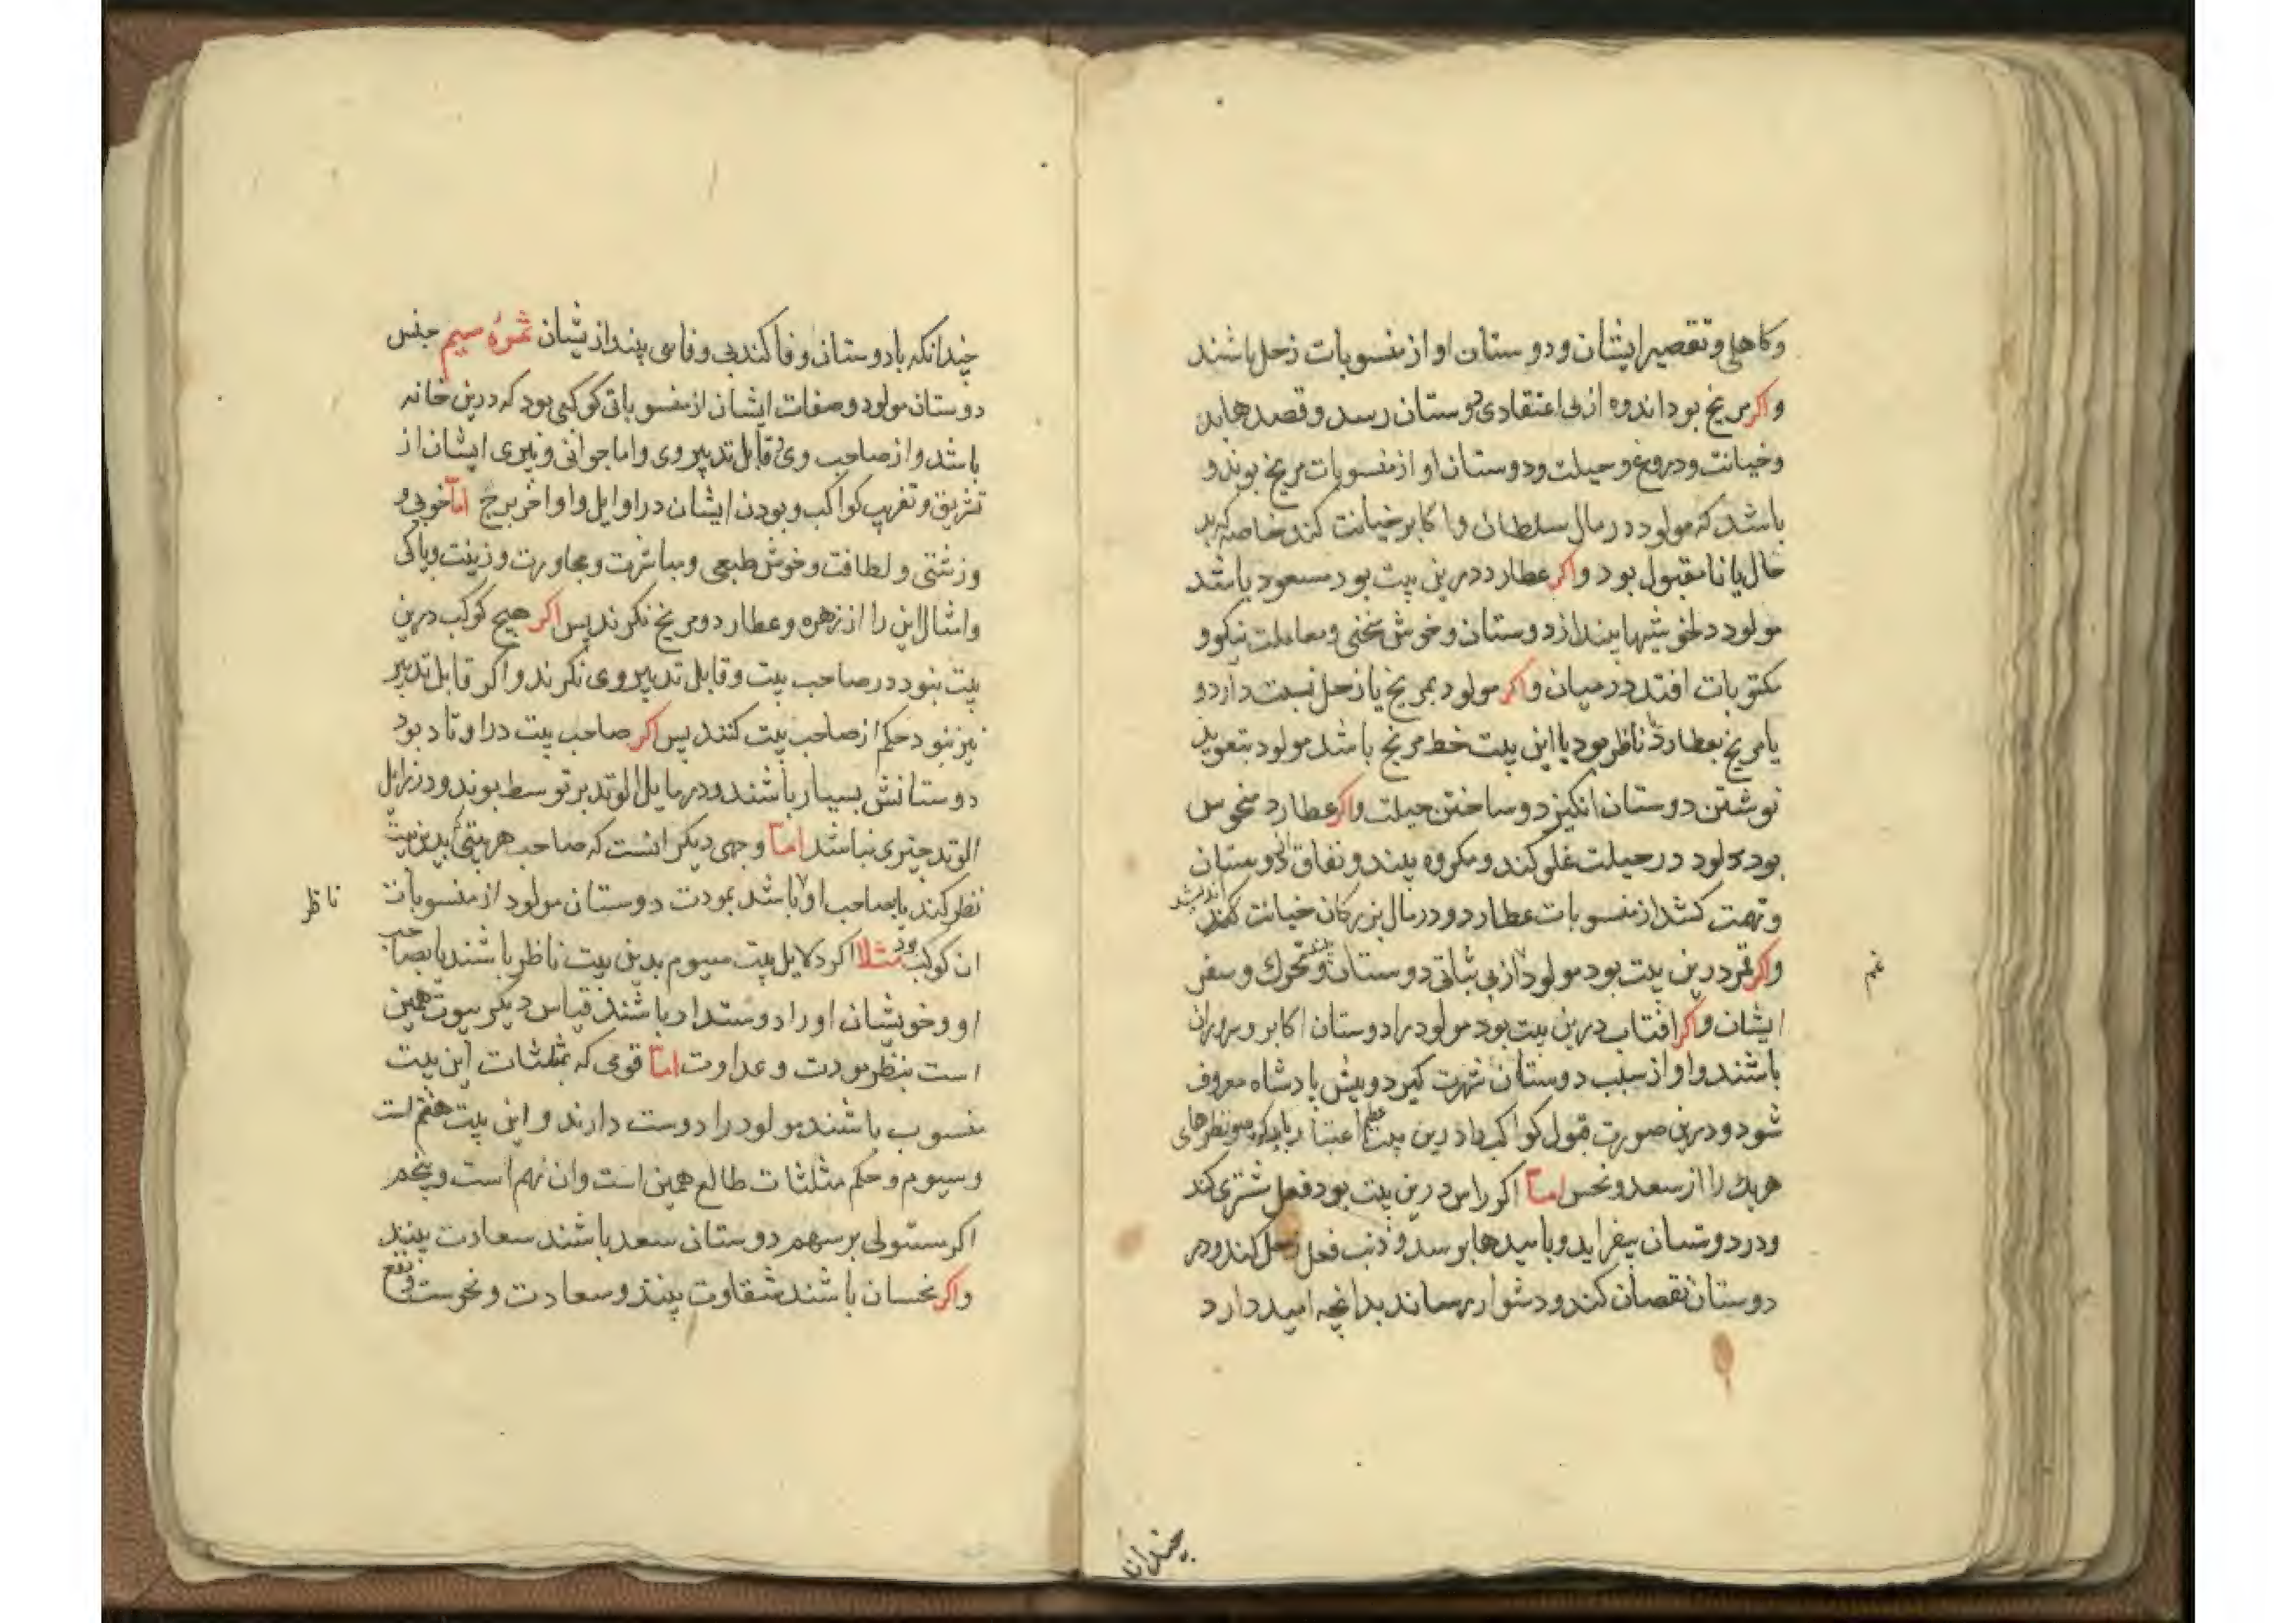 وکاهلی و تقصیر ایشان و دوستان او از منسوبات زحل باشند
واکر مریخ بود اندوه از بی اعتقادی دوستان رسد و قصدها بد
و خیانت و دروغ و حیلت و دوستان او از منسوبات مریخ بوند و
باشد که مولود در مال سلطان و اکابر خیانت کند خاصه که بد
حال یا نامقبول بود واکر عطارد درین بیت بود مسعود باشد
مولود دلخوشیها بیند از دوستان و خوش سخنی و معاملت نیکو و
مکتوبات افتد در میان واکر مولود بمریخ یا زحل نسبت دارد و
یا مریخ بعطارد ناظر بود یا این بیت خط مریخ باشد مولود بتعوید
نوشتن دوستان انکیزد و ساختن حیلت واکر عطارد منحوس
بود مولود در حیلت غلو کند و مکروه بیند و نفاق از دوستان
و تهمت کشد از منسوبات عطارد و در مال بزرکان خیانت کند
اندیشد
واکر قمر درین بیت بود مولود از بی ثباتی دوستان و تحرک و سفر
غم
ایشان واکر افتاب درین بیت بود مولود را دوستان اکابر و سروران
باشند و او از سبب دوستان شهرت کیرد و پیش پادشاه معروف
شود و درین صورت قبول کواکب را درین بیت اعتبار باید کرد و نظرهای
هر یک را از سعد و نحس اما اکر راس درین بیت بود فعل مشتری کند
و در دوستان بیفزاید و بامیدها برسد و ذنب فعل زحل کند و در
دوستان نقصان کند و دشوار رساند بدانچه امید دارد
چندانکه
چندانکه با دوستان وفا کند بی وفایی بیند از یشان ثمرۀ سیم جنس
دوستان مولود و صفات ایشان از منسوبات کوکبی بود که درین خانه
باشد و از صاحب وی و قابل تدبیر وی و اما جوانی و پیری ایشان از
تشریق و تغریب کواکب و بودن ایشان در اوایل و اواخر برج اما خوبی و
و زشتی و لطافت و خوش طبعی و مباشرت و مجاورت و زینت و پاکی
و امثال این را از زهره و عطارد و مریخ نکرند پس اکر هیچ کوکب درین
بیت نبود در صاحب بیت و قابل تدبیر وی نکرند و اکر قابل تدبیر
نیز نبود حکم از صاحب بیت کنند پس اکر صاحب بیت در اوتاد بود
دوستانش بسیار باشند و در مایل الوتد برتوسط بوند و در زائل
الوتد چیزی نباشد اما وجهی دیکر انست که صاحب هر بیتی که بدین بیت
نظر کند یا بصاحب او باشد بمودت دوستان مولود از منسوبات
ناظر
ان کوکب بود مثلا اکر دلایل بیت سیوم بدین بیت ناظر باشند یا بصاحب
او و خویشان او را دوستدار باشند قیاس دیکر بیوت همین
است بنظر مودت و عداوت اما قومی که بمثلثات این بیت
منسوب باشند مولود را دوست دارند و این بیت هفتم است
و سیوم و حکم مثلثات طالع همین است و ان نهم است و پنجم
اکر مستولی بر سهم دوستان سعد باشند سعادت بیند
واکر نحسان باشند شقاوت بیند و سعادت و نحوست